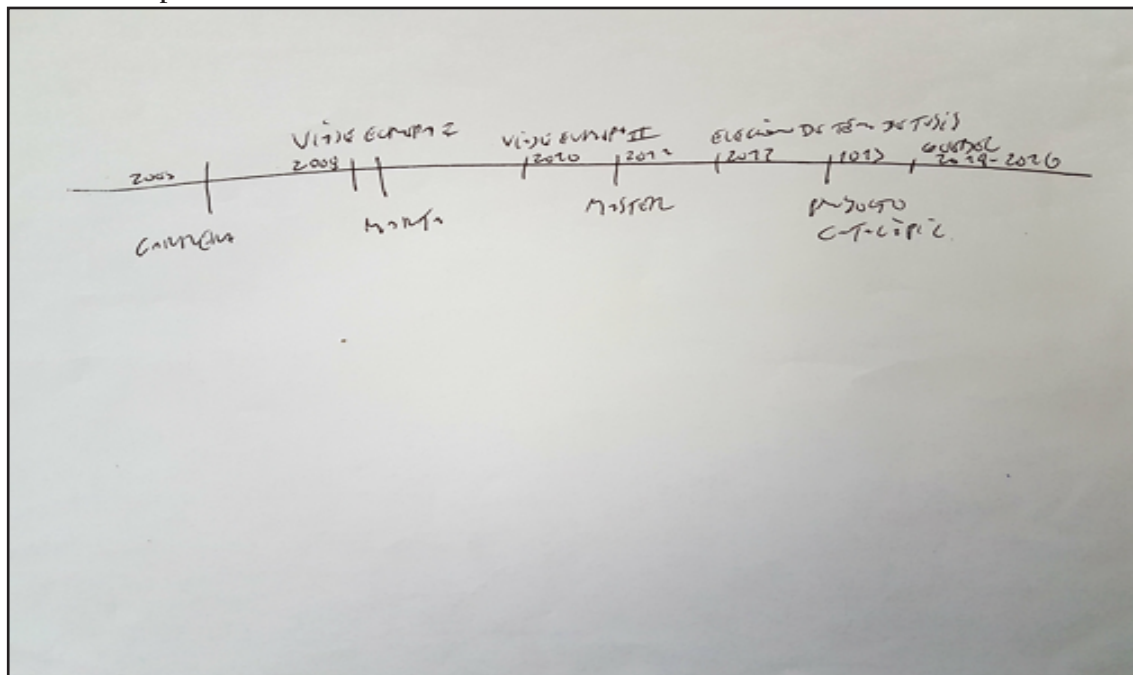 VIAJE EUROPA I
VIAJE EUROPA II
ELECCIÓN DE TEMA DE TESIS
2008
2010
2012
2013
2014-2016
CARRERA
MARTA
MASTER
PROYECTO